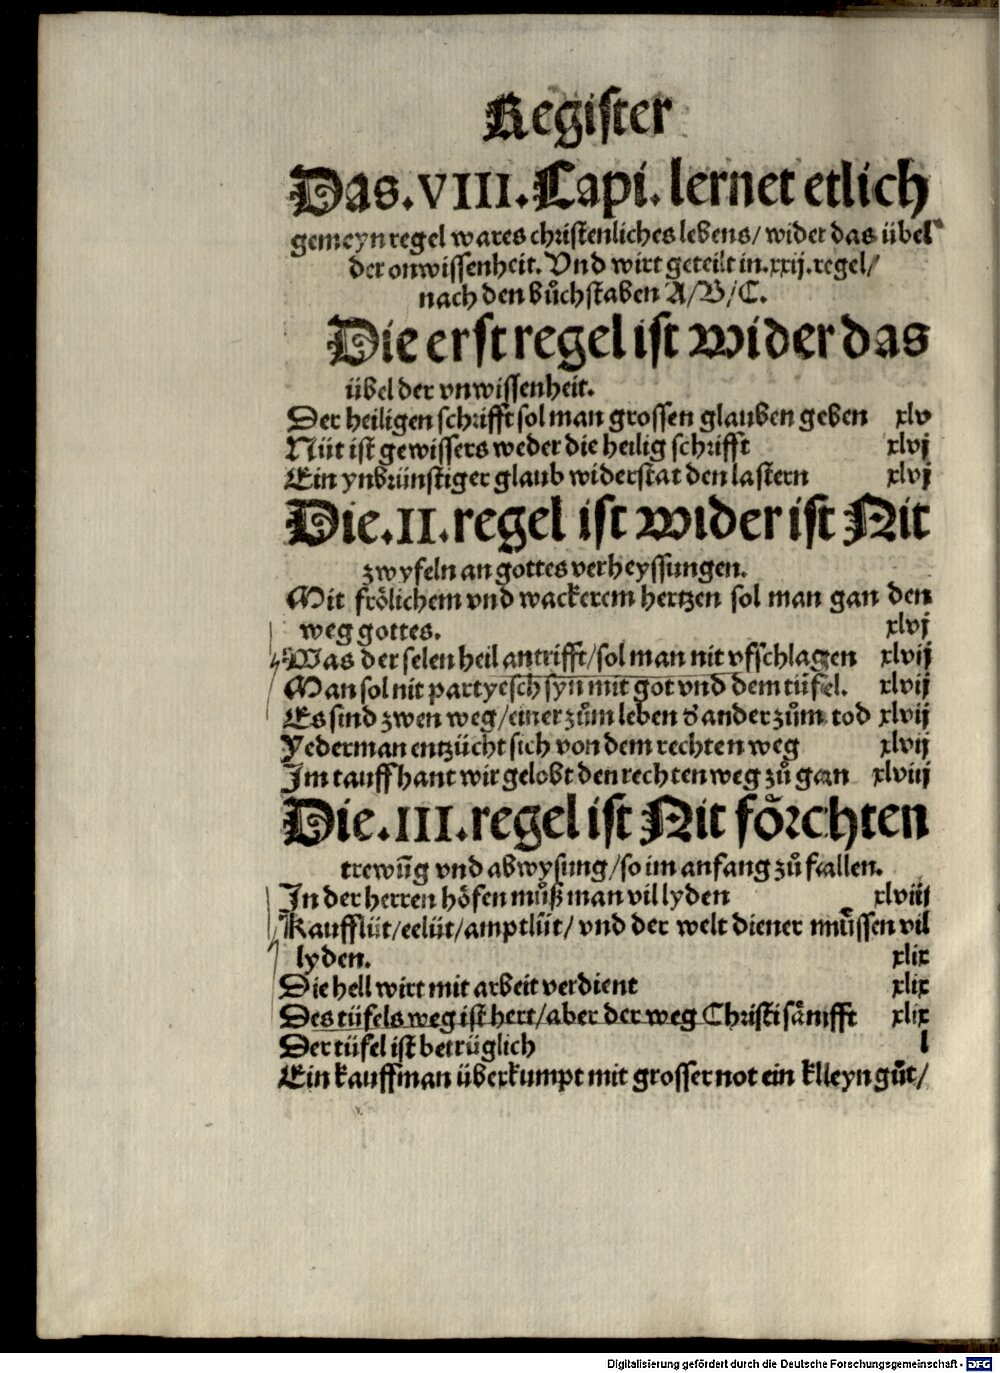 Register
Das.VIII.Capi.lernet etlich
gemeyn regel wares christenliches lebens/ wider das übel
der onwissenheit. Vnd wirt geteilt in.xxij.regel/
nach den bůchstaben A/B/C.
Die erst regel ist wider das
übel der vnwissenheit.
Der heiligen schrifft sol man grossen glauben geben xlv
Nüt ist gewissers weder die heilig schrifft xlvj
Ein ynbrünstiger glaub widerstat den lastern xlvj
Die.II.regel ist wider ist Nit
zwyfeln an gottes verheyssungen.
Mit frölichem vnd wackerem hertzen sol man gan den
weg gottes. xlvj
Was der selen heil antrifft/sol man nit vfschlagen xlvij
Man sol nit partyesch syn mit got vnd dem tüfel. xlvij
Es sind zwen weg/einer zům leben d ander zům tod xlvij
Yederman entzücht sich von dem rechten weg xlvij
Im tauff hant wir gelobt den rechten weg zů gan xlviij
Die.III.regel ist Nit förchten
trewūg vnd abwysung/so im anfang zů fallen.
In der herren höfen můß man vil lyden xlviij
Kaufflüt/eelüt/amptlüt/ vnd der welt diener můssen vil
lyden. xlix
Die hell wirt mit arbeit verdient xlix
Des tüfels weg ist hert/aber der weg Christi sämfft xlix
Der tüfel ist betrüglich l
Ein kauffman überkumpt mit grosser not ein klleyn gůt/
Digitalisierung gefördert durch die Deutsche Forschungsgemeinschaft - DFG